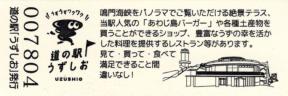 道の駅「うずしお」発行
007804
うずうずワクワク!
道の駅
うずしお
UZUSHIO
鳴門海峡をパノラマでご覧いただける絶景テラス、
当駅人気の「あわじ島バーガー」や各種土産物を
買うことができるショップ、豊富なうずの幸を活か
した料理を提供するレストラン等があります。
見て・買って・食べて
満足できること間
違いなし!